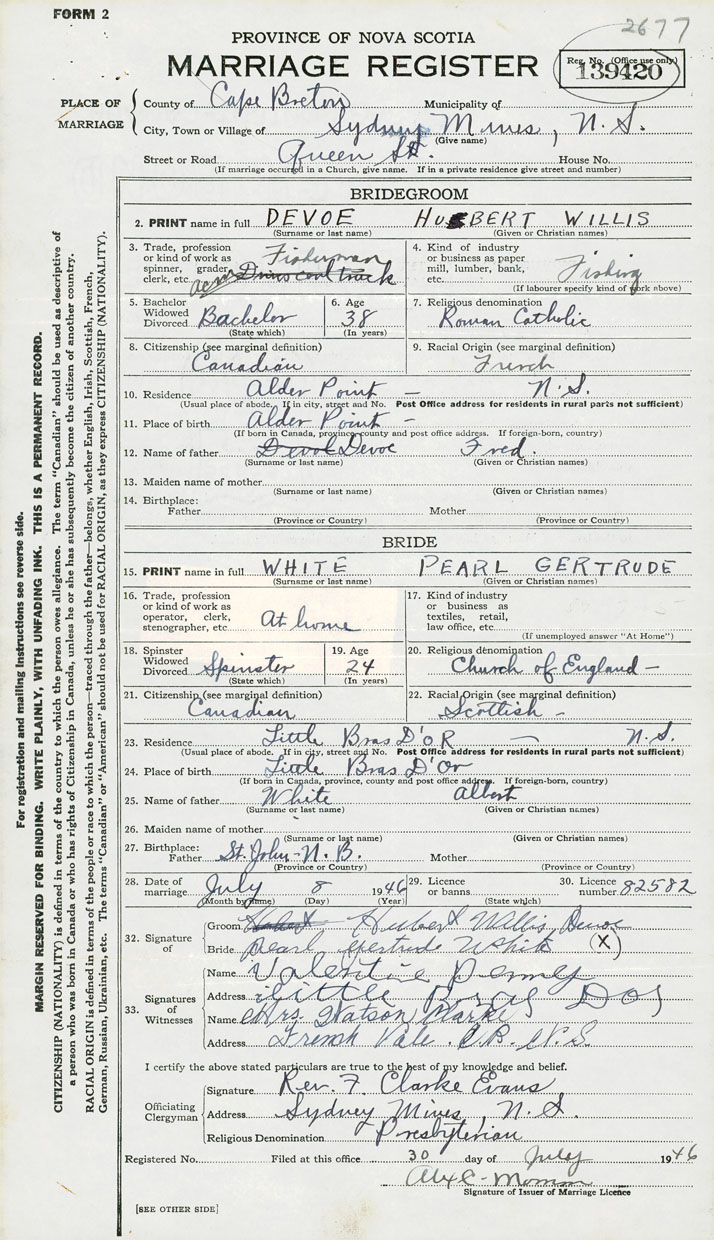 FORM 2
2677
PROVINCE OF NOVA SCOTIA
MARRIAGE REGISTER
Reg. No. (Office use only)
139420
PLACE OF MARRIAGE
County of Cape Breton Municipality of
City, Town or Village of Sydney Mines, N.S.
(Give name)
Street or Road Queen St. House No.
(If marriage occurred in a Church, give name. If in a private residence give street and number)
BRIDEGROOM
2. PRINT name in full DEVOE HUBERT WILLIS
(Surname or last name) (Given or Christian names)
3. Trade, profession or kind of work as spinner, grader, clerk, etc. Fisherman
4. Kind of industry or business as paper mill, lumber, bank, etc. Fishing
(If labourer specify kind of work above)
5. Bachelor Widowed Divorced Bachelor
(State which)
6. Age 38
(In years)
7. Religious denomination Roman Catholic
8. Citizenship (see marginal definition) Canadian
9. Racial Origin (see marginal definition) French
10. Residence Alder Point — N.S.
(Usual place of abode. If in city, street and No. Post Office address for residents in rural parts not sufficient)
11. Place of birth Alder Point —
(If born in Canada, province, county and post office address. If foreign-born, country)
12. Name of father Devoe Fred.
(Surname or last name) (Given or Christian names)
13. Maiden name of mother
(Surname or last name) (Given or Christian names)
14. Birthplace:
Father Mother
(Province or Country) (Province or Country)
BRIDE
15. PRINT name in full WHITE PEARL GERTRUDE
(Surname or last name) (Given or Christian names)
16. Trade, profession or kind of work as operator, clerk, stenographer, etc. At home
17. Kind of industry or business as textiles, retail, law office, etc.
(If unemployed answer "At Home")
18. Spinster Widowed Divorced Spinster
(State which)
19. Age 24
(In years)
20. Religious denomination Church of England —
21. Citizenship (see marginal definition) Canadian
22. Racial Origin (see marginal definition) Scottish -
23. Residence Little Bras D'OR — N.S.
(Usual place of abode. If in city, street and No. Post Office address for residents in rural parts not sufficient)
24. Place of birth Little Bras D'Or
(If born in Canada, province, county and post office address. If foreign-born, country)
25. Name of father White Albert
(Surname or last name) (Given or Christian names)
26. Maiden name of mother
(Surname or last name) (Given or Christian names)
27. Birthplace:
Father St. John - N.B. Mother
(Province or Country) (Province or Country)
28. Date of marriage July 8 1946
(Month by name) (Day) (Year)
29. Licence or banns
(State which)
30. Licence number 82582
32. Signature of
Groom Hubert Willis Devoe
Bride Pearl Gertrude White (X)
33. Signatures of Witnesses
Name Valentine Penney
Address Little Bras Dor
Name Mrs. Watson Clarke
Address French Vale. C.B. N.S.
I certify the above stated particulars are true to the best of my knowledge and belief.
Officiating Clergyman
Signature Rev. F. Clarke Evans
Address Sydney Mines, N.S.
Religious Denomination Presbyterian
Registered No. Filed at this office 30 day of July 1946
Signature of Issuer of Marriage Licence
[SEE OTHER SIDE]
For registration and mailing instructions see reverse side.
MARGIN RESERVED FOR BINDING. WRITE PLAINLY, WITH UNFADING INK. THIS IS A PERMANENT RECORD.
CITIZENSHIP (NATIONALITY) is defined in terms of the country to which the person owes allegiance. The term "Canadian" should be used as descriptive of
a person who was born in Canada or who has rights of Citizenship in Canada, unless he or she has subsequently become the citizen of another country.
RACIAL ORIGIN is defined in terms of the people or race to which the person—traced through the father—belongs, whether English, Irish, Scottish, French,
German, Russian, Ukrainian, etc. The terms "Canadian" or "American" should not be used for RACIAL ORIGIN, as they express CITIZENSHIP (NATIONALITY).